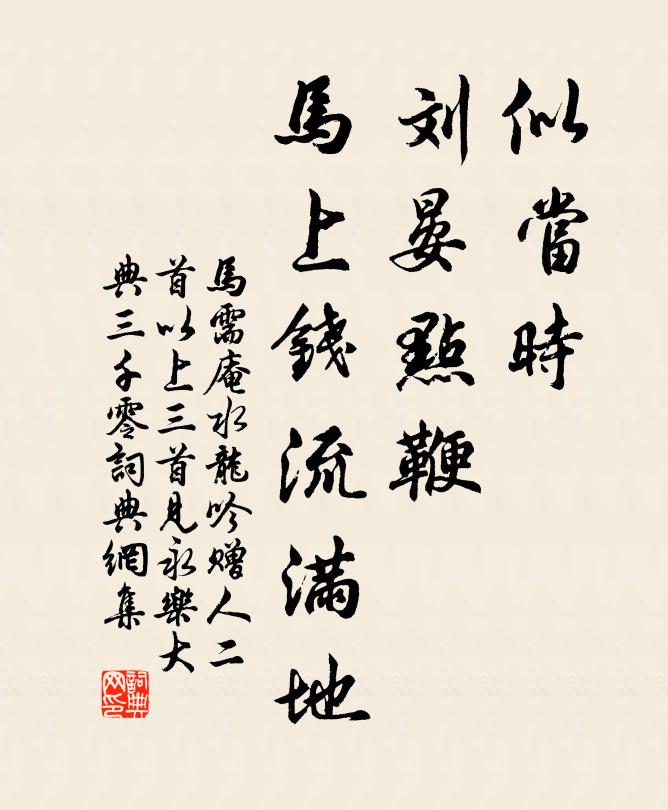 似當時
刘晏點鞭
馬上錢流滿地
馬需庵水龍吟贈人二
首以上三首見永樂大
典三千零詞典網集
詞典
网印